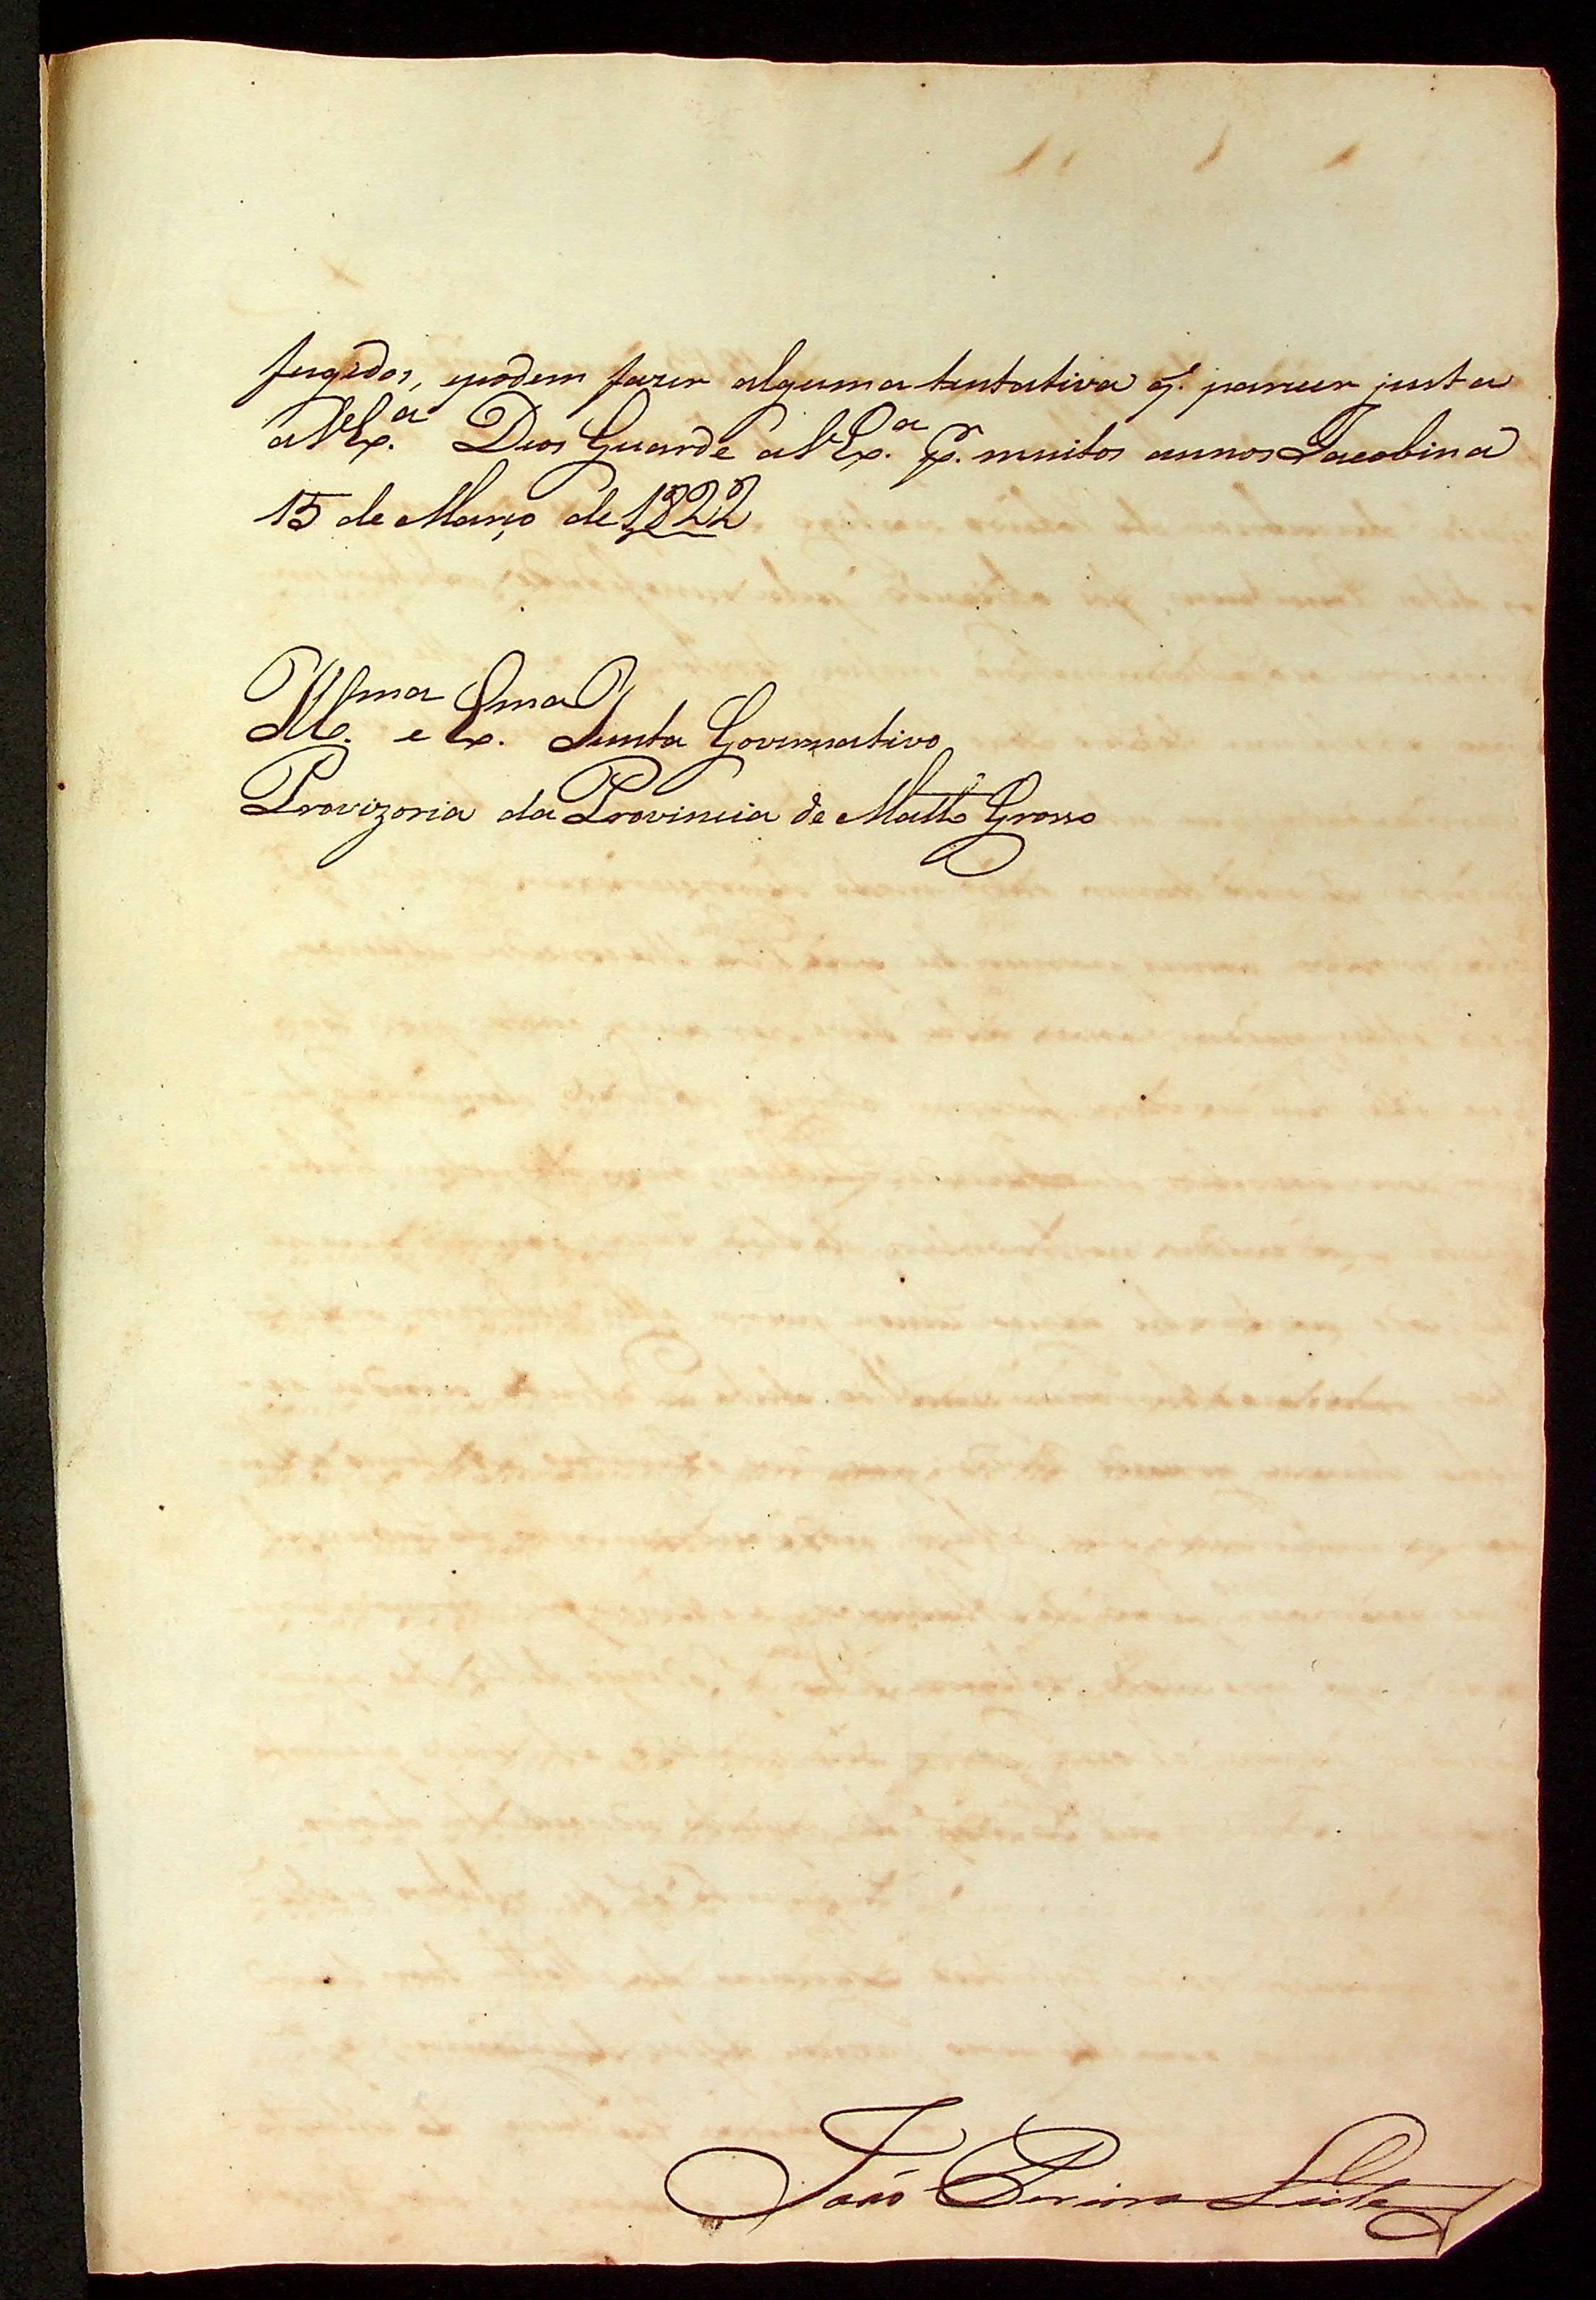 fugidos, epodem fazer alguma tentativa q. parecer justa
aVEx.ª Deos Guarde aVEx.ª p.r muitos annos Jacobina
15 de Março de 1822
Ill.ma e Ex.ma Junta Governativa
Provizoria da Provincia de Matto Grosso
João Pereira Leite